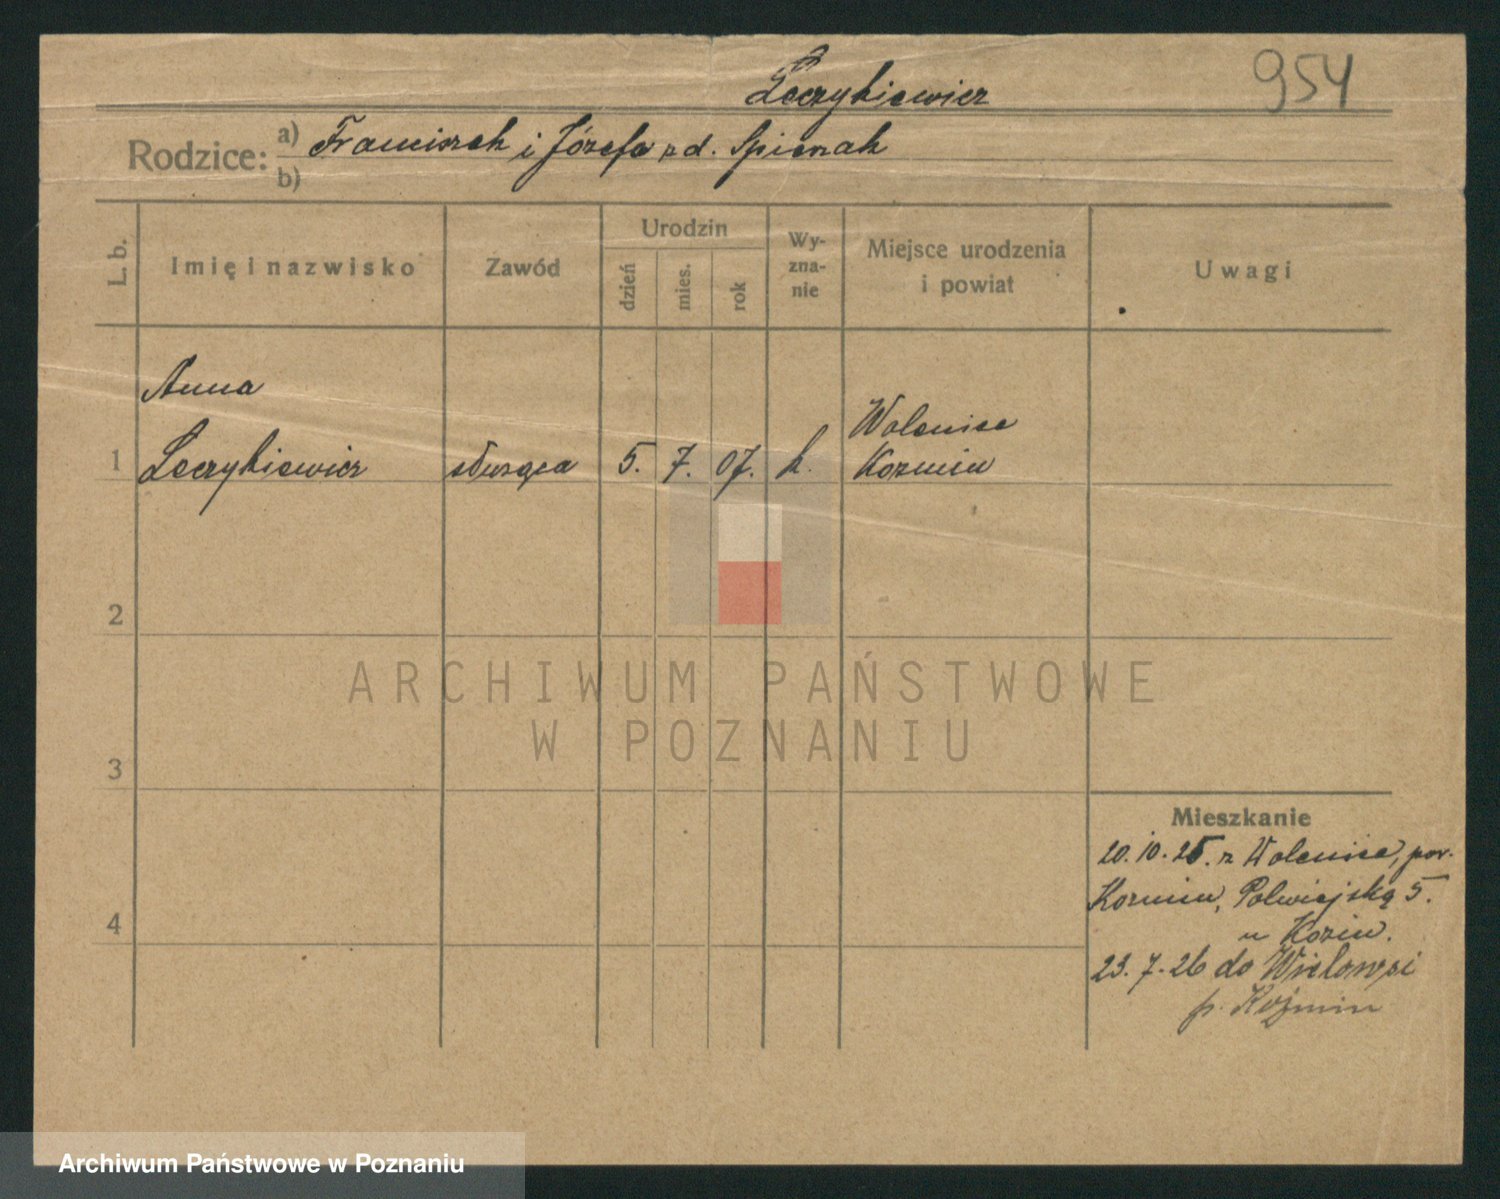 Leczykiewicz
954
Rodzice: a) Franciszek i Józefa z d. Spierzak
b)
L. b.
Imię i nazwisko
Zawód
Urodzin
dzień
mies.
rok
Wy-
zna-
nie
Miejsce urodzenia
i powiat
Uwagi
Anna
1 Leczykiewicz służąca 5. 7. 07. k. Wolenice
Kozmin
2
ARCHIWUM PAŃSTWOWE
W POZNANIU
3
Mieszkanie
20.10.25. z Wolenice, pow.
Kozmin, Polwiejską 5.
4
u Kozin.
23.7.26 do Wielowsi
p. Koźmin
Archiwum Państwowe w Poznaniu